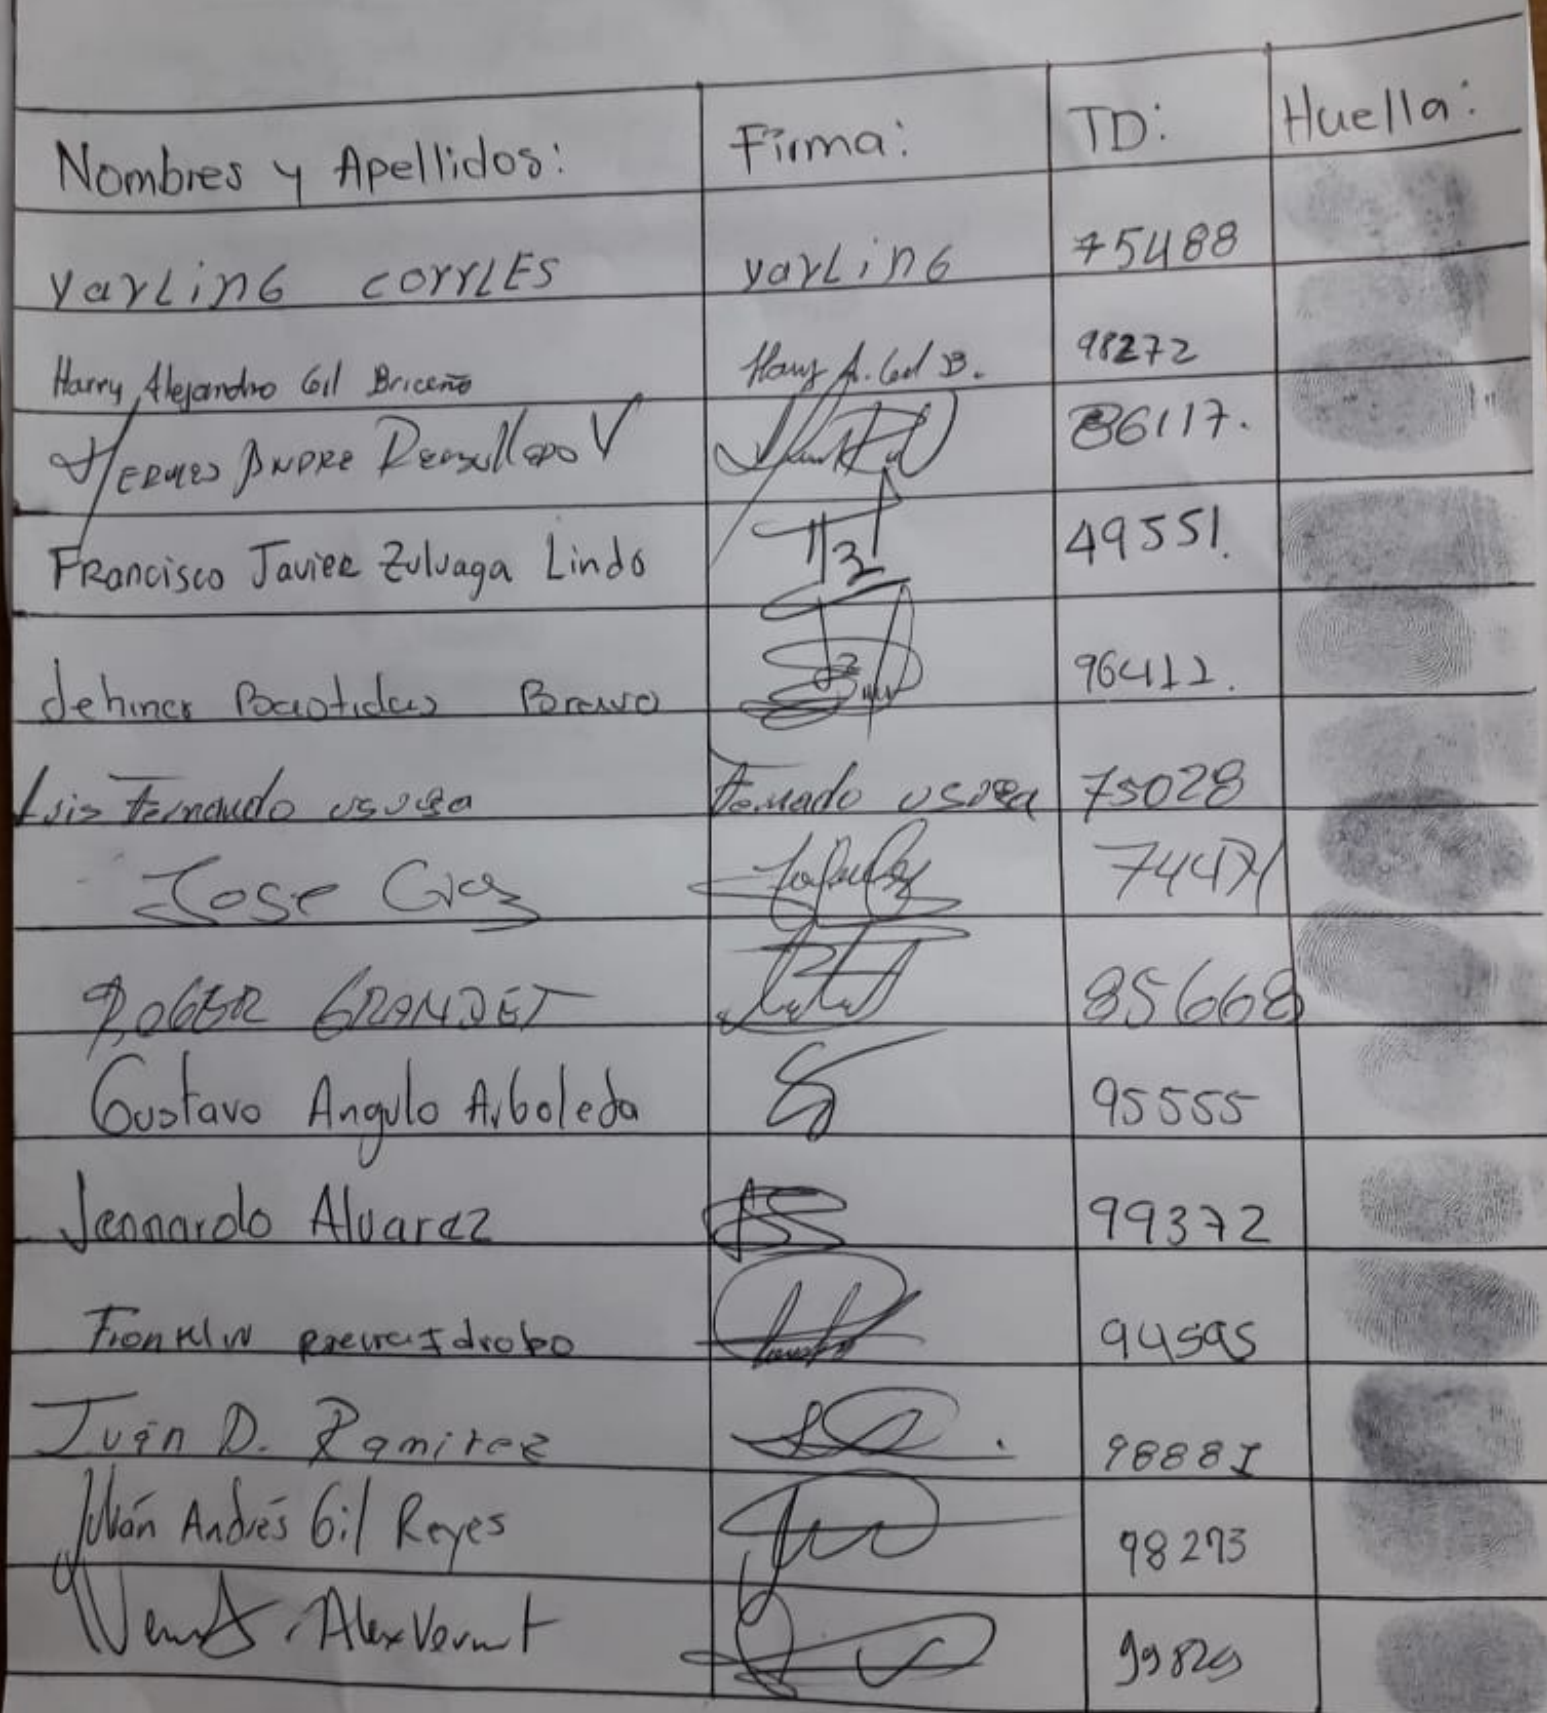 Nombres y Apellidos: Firma: TD: Huella:
yarLinG corrLES yarLinG 75488
Harry Alejandro Gil Briceño Harry A. Gil B. 98272
HERMES ANDRE V 86117.
Francisco Javier Zuluaga Lindo 49551.
Bastidas Bravo 96412.
Luis Fernando usuga Fernado usuga 75028
Jose 74471
ROGER GRANDET 85668
Gustavo Angulo Arboleda 95555
Jennardo Alvarez 99372
Franklin 94595
Iván D. Ramirez 98881
Julián Andrés Gil Reyes 98273
Alex Vernut 99829